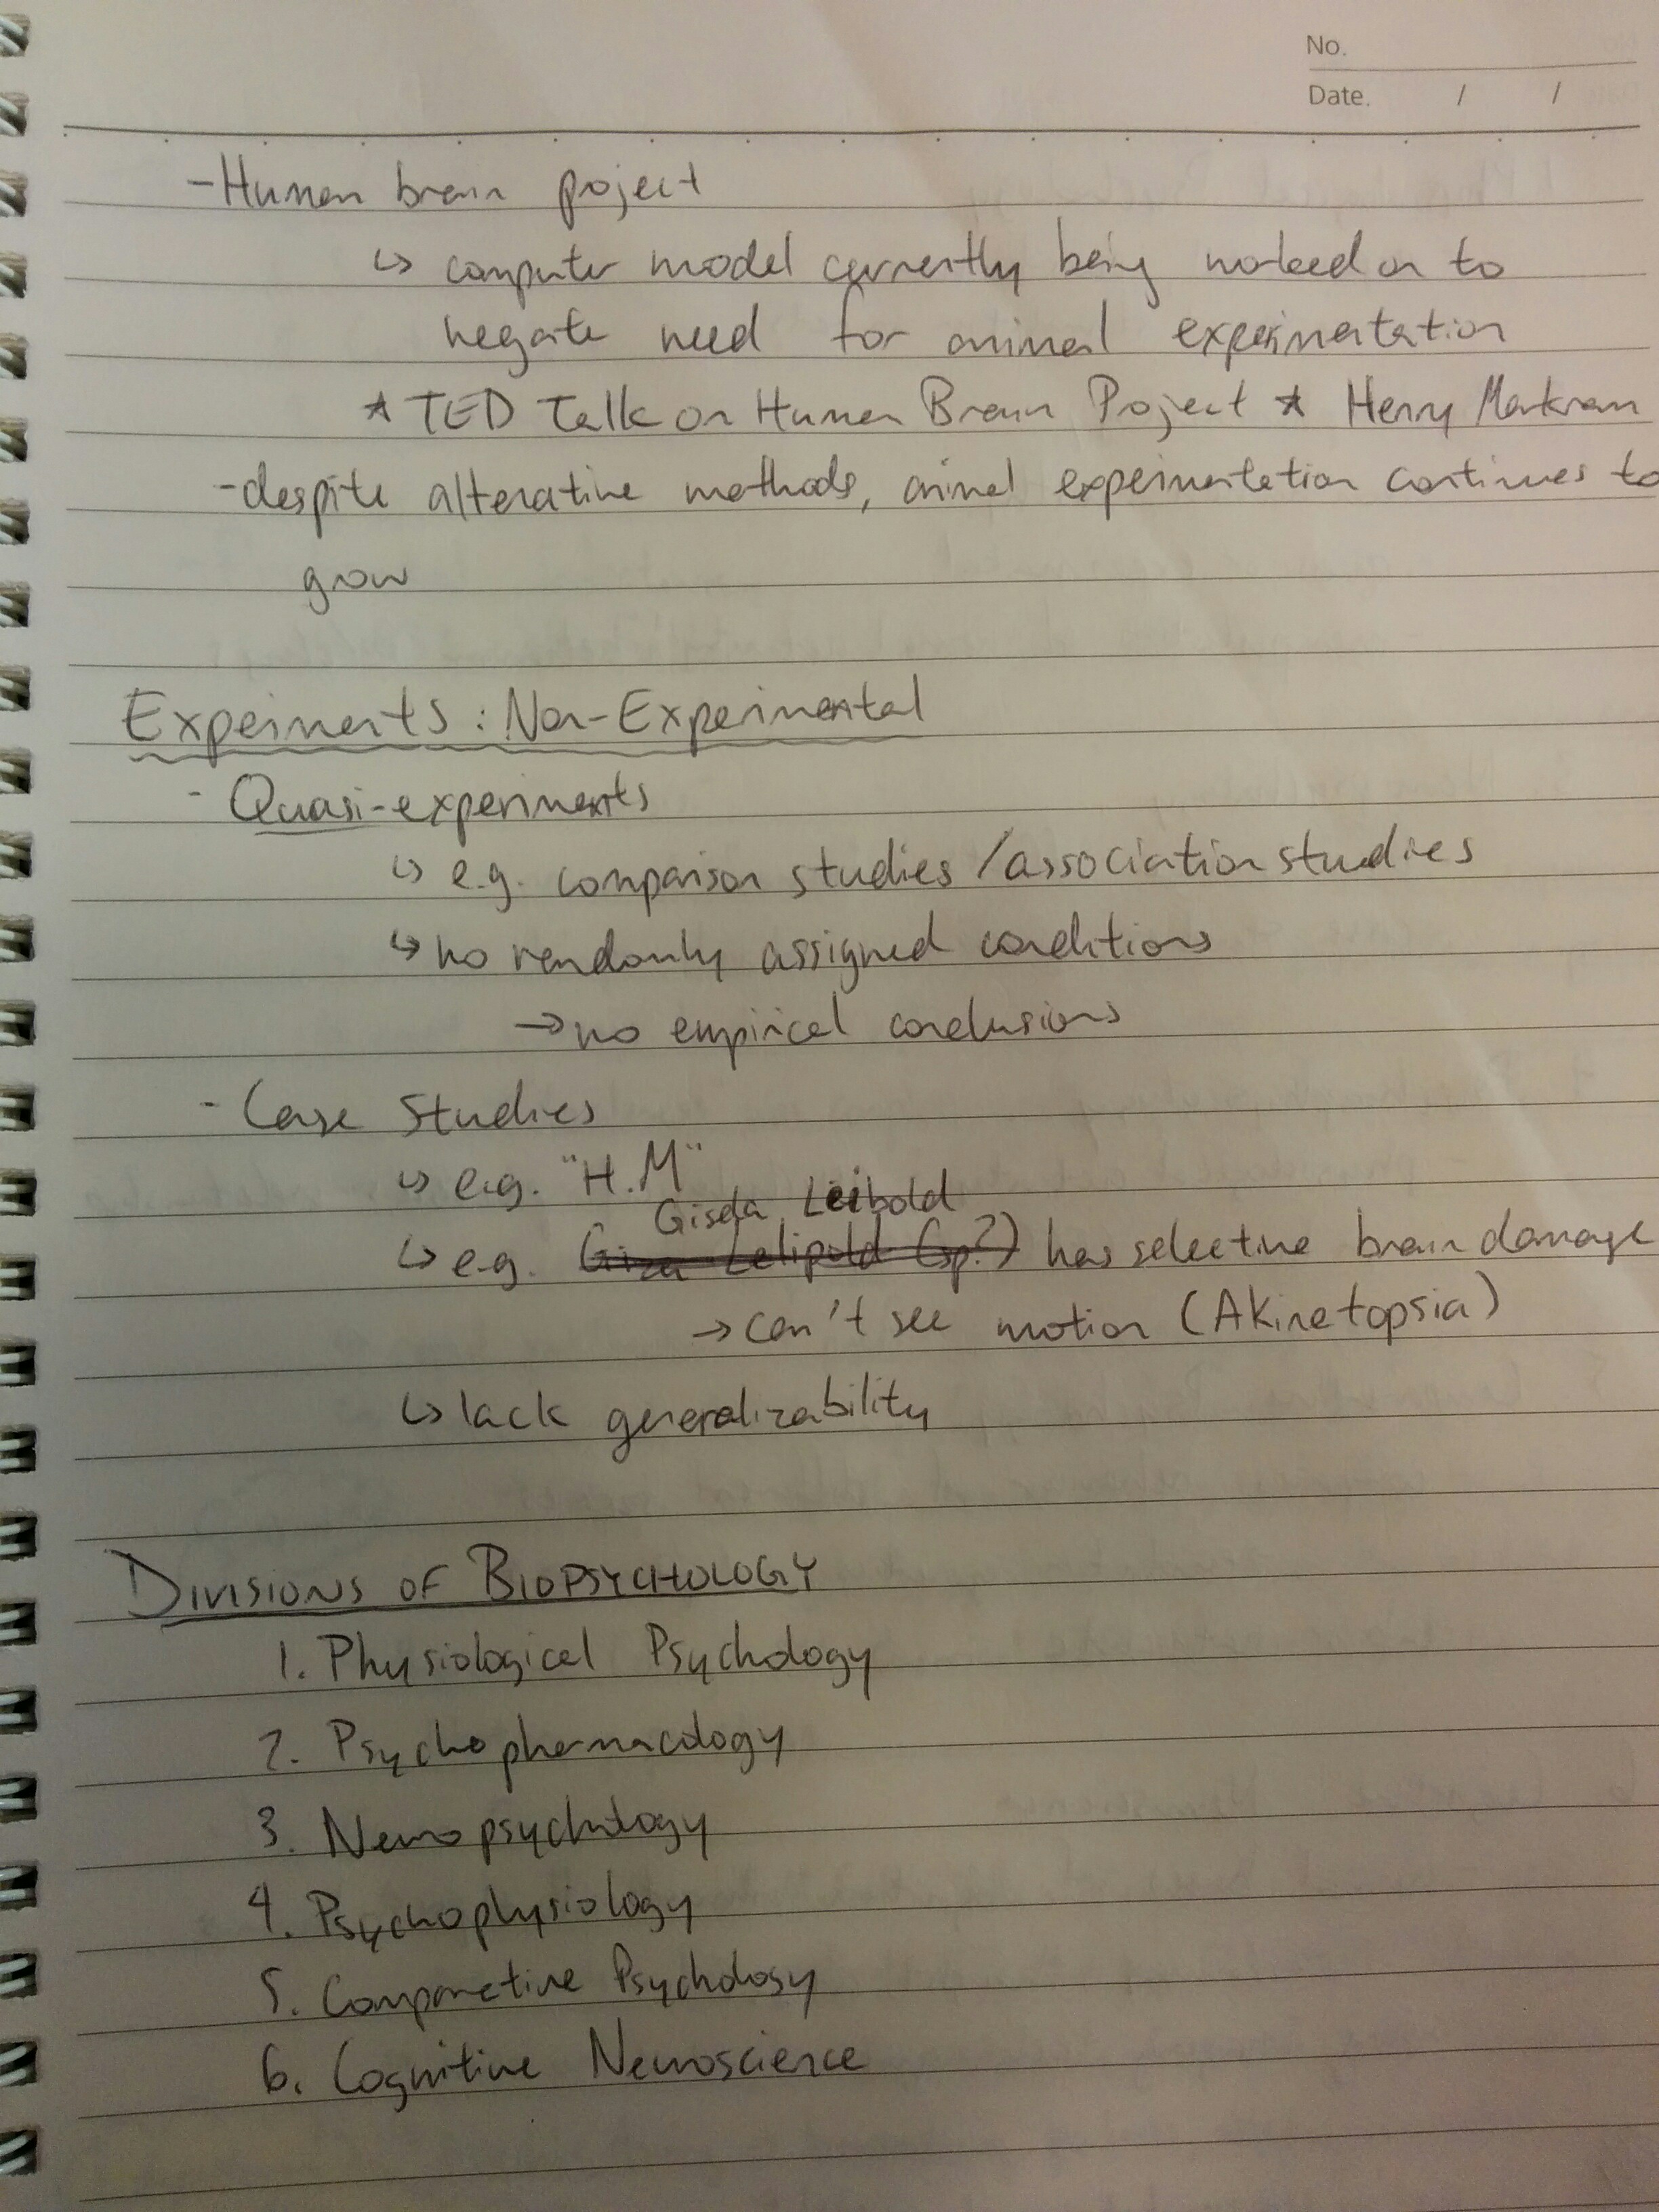 No.
Date. / /
- Human brain project
↳ computer model currently being worked on to
negate need for animal experimentation
* TED Talk on Human Brain Project * Henry Markram
- despite alterative methods, animal experimentation continues to
grow
Experiments : Non-Experimental
- Quasi-experiments
↳ e.g. comparison studies / association studies
↳ no randomly assigned conditions
→ no empirical conclusions
- Case Studies
↳ e.g. "H.M"
Gisela Leibold
↳ e.g. Giza Lelipold (sp?) has selective brain damage
→ can't see motion (Akinetopsia)
↳ lack generalizability
DIVISIONS OF BIOPSYCHOLOGY
1. Physiological Psychology
2. Psychopharmacology
3. Neuropsychology
4. Psychophysiology
5. Comparative Psychology
6. Cognitive Neuroscience